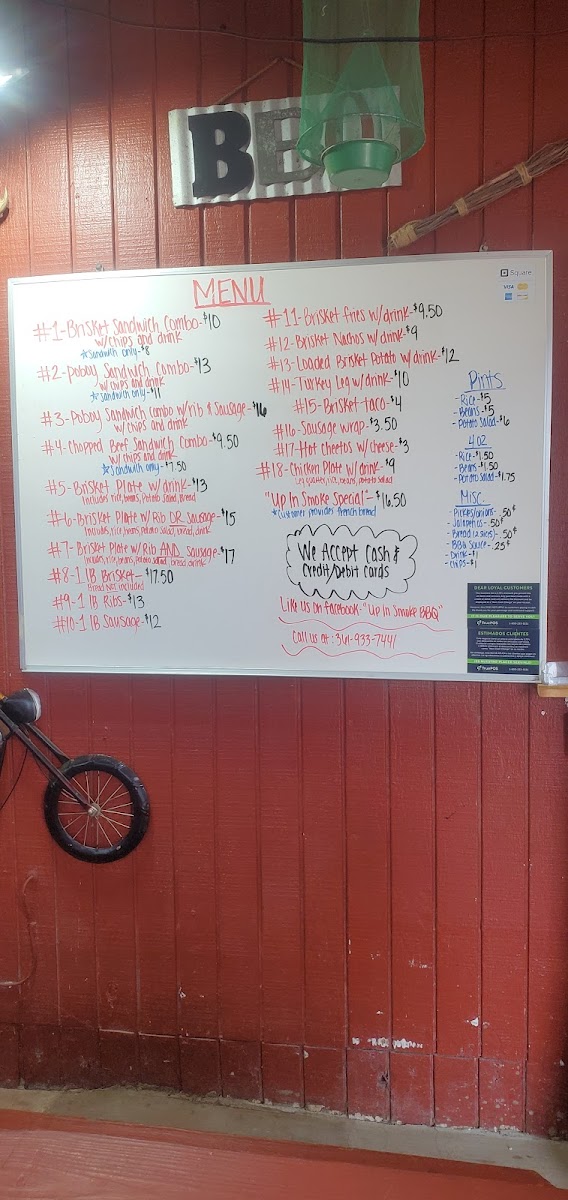 BBQ
MENU
#1-Brisket Sandwich Combo-$10
w/chips and drink
☆Sandwich only-$8
#2-Poboy Sandwich Combo-$13
w/chips and drink
☆Sandwich only-$11
#3-Poboy Sandwich Combo w/rib & Sausage-$16
w/chips and drink
#4-Chopped Beef Sandwich Combo-$9.50
w/chips and drink
☆Sandwich only-$7.50
#5-Brisket Plate w/drink-$13
Includes rice, beans, potato salad, bread
#6-Brisket Plate w/ Rib OR Sausage-$15
Includes, rice, beans, potato salad, bread, drink
#7-Brisket Plate w/ Rib AND Sausage-$17
Includes, rice, beans, potato salad, bread, drink
#8-1 lB Brisket-$17.50
Bread NOT included
#9-1 lB Ribs-$13
#10-1 lB Sausage-$12
#11-Brisket fries w/drink-$9.50
#12-Brisket Nachos w/drink-$9
#13-Loaded Brisket Potato w/drink-$12
#14-Turkey Leg w/drink-$10
#15-Brisket taco-$4
#16-Sausage wrap-$3.50
#17-Hot Cheetos w/cheese-$3
#18-Chicken Plate w/drink-$9
Leg quarter, rice, beans, potato salad
"Up In Smoke Special"-$16.50
☆Customer provides french bread
We Accept Cash &
Credit/Debit Cards
Like us on Facebook-"Up In Smoke BBQ"
Call us at: 361-933-7441
Square
VISA
Pints
-Rice-$5
-Beans-$5
-Potato Salad-$6
4 oz
-Rice-$1.50
-Beans-$1.50
-Potato Salad-$1.75
Misc.
-Pickles/onions-.50¢
-Jalapeños-.50¢
-Bread (2 slices)-.50¢
-BBQ Sauce-.25¢
-Drink-$1
-Chips-$1
DEAR LOYAL CUSTOMERS
ESTIMADOS CLIENTES